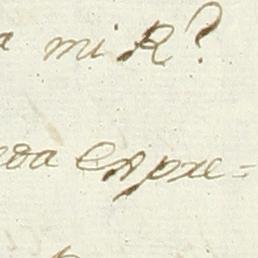 a mi R?
eda expre=